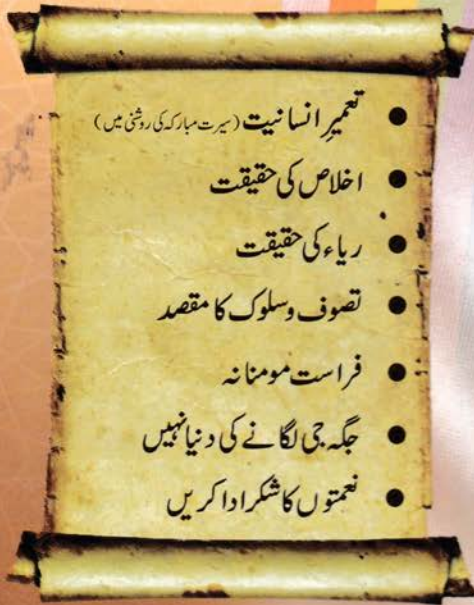 ● تعمیرِ انسانیت (سیرت مبارکہ کی روشنی میں)
● اخلاص کی حقیقت
● ریاء کی حقیقت
● تصوف و سلوک کا مقصد
● فراست مومنانہ
● جگہ جی لگانے کی دنیا نہیں
● نعمتوں کا شکر ادا کریں